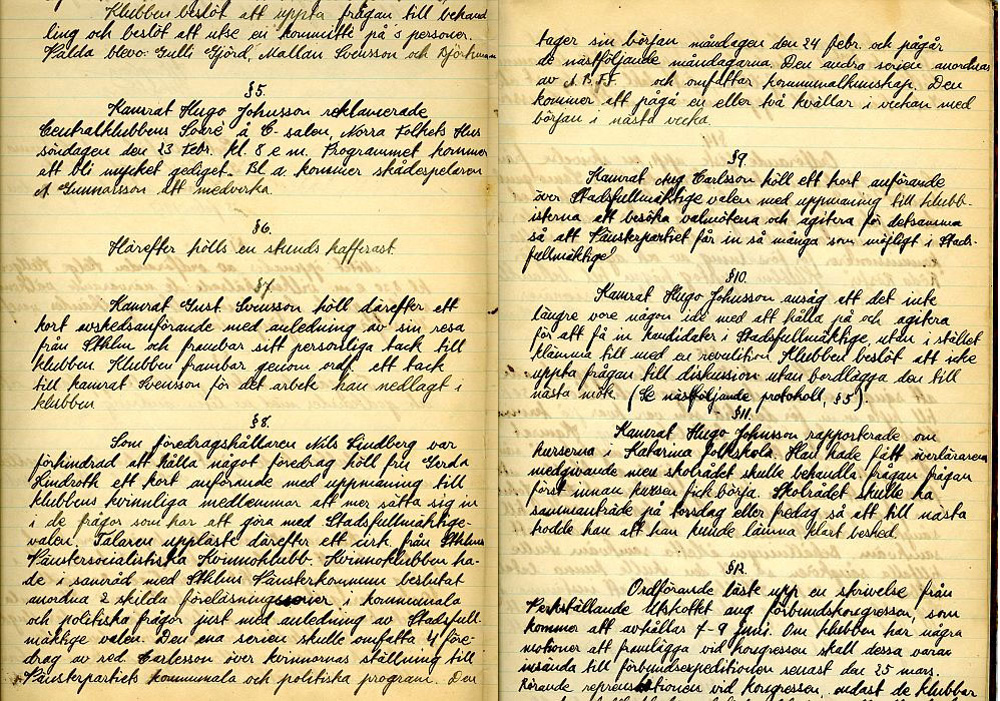 Klubben beslöt att uppta frågan till behand
ling och beslöt att utse en kommitté på 3 personer.
Valda blevo: Gulli Gjörd, Mallan Svensson och Björkman
§5.
Kamrat Hugo Johnsson reklamerade
Centralklubbens Soaré å C-salen, Norra Folkets Hus
söndagen den 23 Febr. kl. 8 e m. Programmet kommer
att bli mycket gediget. Bl a. kommer skådespelaren
A. Gunnarsson att medverka.
§6.
Härefter hölls en stunds kafferast.
§7.
Kamrat Gust. Svensson höll därefter ett
kort avskedsanförande med anledning av sin resa
från Sthlm och frambar sitt personliga tack till
klubben. Klubben frambar genom ordf. ett tack
till kamrat Svensson för det arbete han nedlagt i
klubben
§8.
Som föredragshållaren Nils Lindberg var
förhindrad att hålla något föredrag höll fru Gerda
Lindroth ett kort anförande med uppmaning till
klubbens kvinnliga medlemmar att mer sätta sig in
i de frågor som har att göra med Stadsfullmäktige-
valen. Talaren uppläste därefter ett cirk. från Sthlms
Vänstersocialistiska Kvinnoklubb. Kvinnoklubben ha-
de i samråd med Sthlms Vänsterkommun beslutat
anordna 2 skilda föreläsningsserier i kommunala
och politiska frågor just med anledning av Stadsfull-
mäktige valen. Den ena serien skulle omfatta 4 före-
drag av red. Carlesson över kvinnornas ställning till
Vänsterpartiets kommunala och politiska program. Den
tager sin början måndagen den 24 febr. och pågår
de nästföljande måndagarna. Den andra serien anordnas
av A.B.F. och omfattar kommunalkunskap. Den
kommer att pågå en eller två kvällar i veckan med
början i nästa vecka.
§9.
Kamrat Aug Carlsson höll ett kort anförande
över Stadsfullmäktige valen med uppmaning till klubb-
isterna att besöka valmötena och agitera för detsamma
så att Vänsterpartiet får in så många som möjligt i Stads-
fullmäktige!
§10.
Kamrat Hugo Johnsson ansåg att det inte
längre vore någon idé med att hålla på och agitera
för att få in kandidater i Stadsfullmäktige, utan i stället
klämma till med en revolution. Klubben beslöt att icke
uppta frågan till diskussion utan bordlägga den till
nästa möte (Se nästföljande protokoll, §5).
§11.
Kamrat Hugo Johnsson rapporterade om
kurserna i Katarina folkskola. Han hade fått överlärarens
medgivande men skolrådet skulle behandla frågan frågan
först innan kursen fick börja. Skolrådet skulle ha
sammanträde på torsdag eller fredag så att till nästa
trodde han att han kunde lämna klart besked.
§12.
Ordförande läste upp en skrivelse från
Verkställande Utskottet ang. förbundskongressen, som
kommer att avhållas 7-9 juni. Om klubben har några
motioner att framlägga vid kongressen skall dessa vara
insända till förbundsexpeditionen senast den 25 mars.
Rörande representationen vid kongressen, endast de klubbar